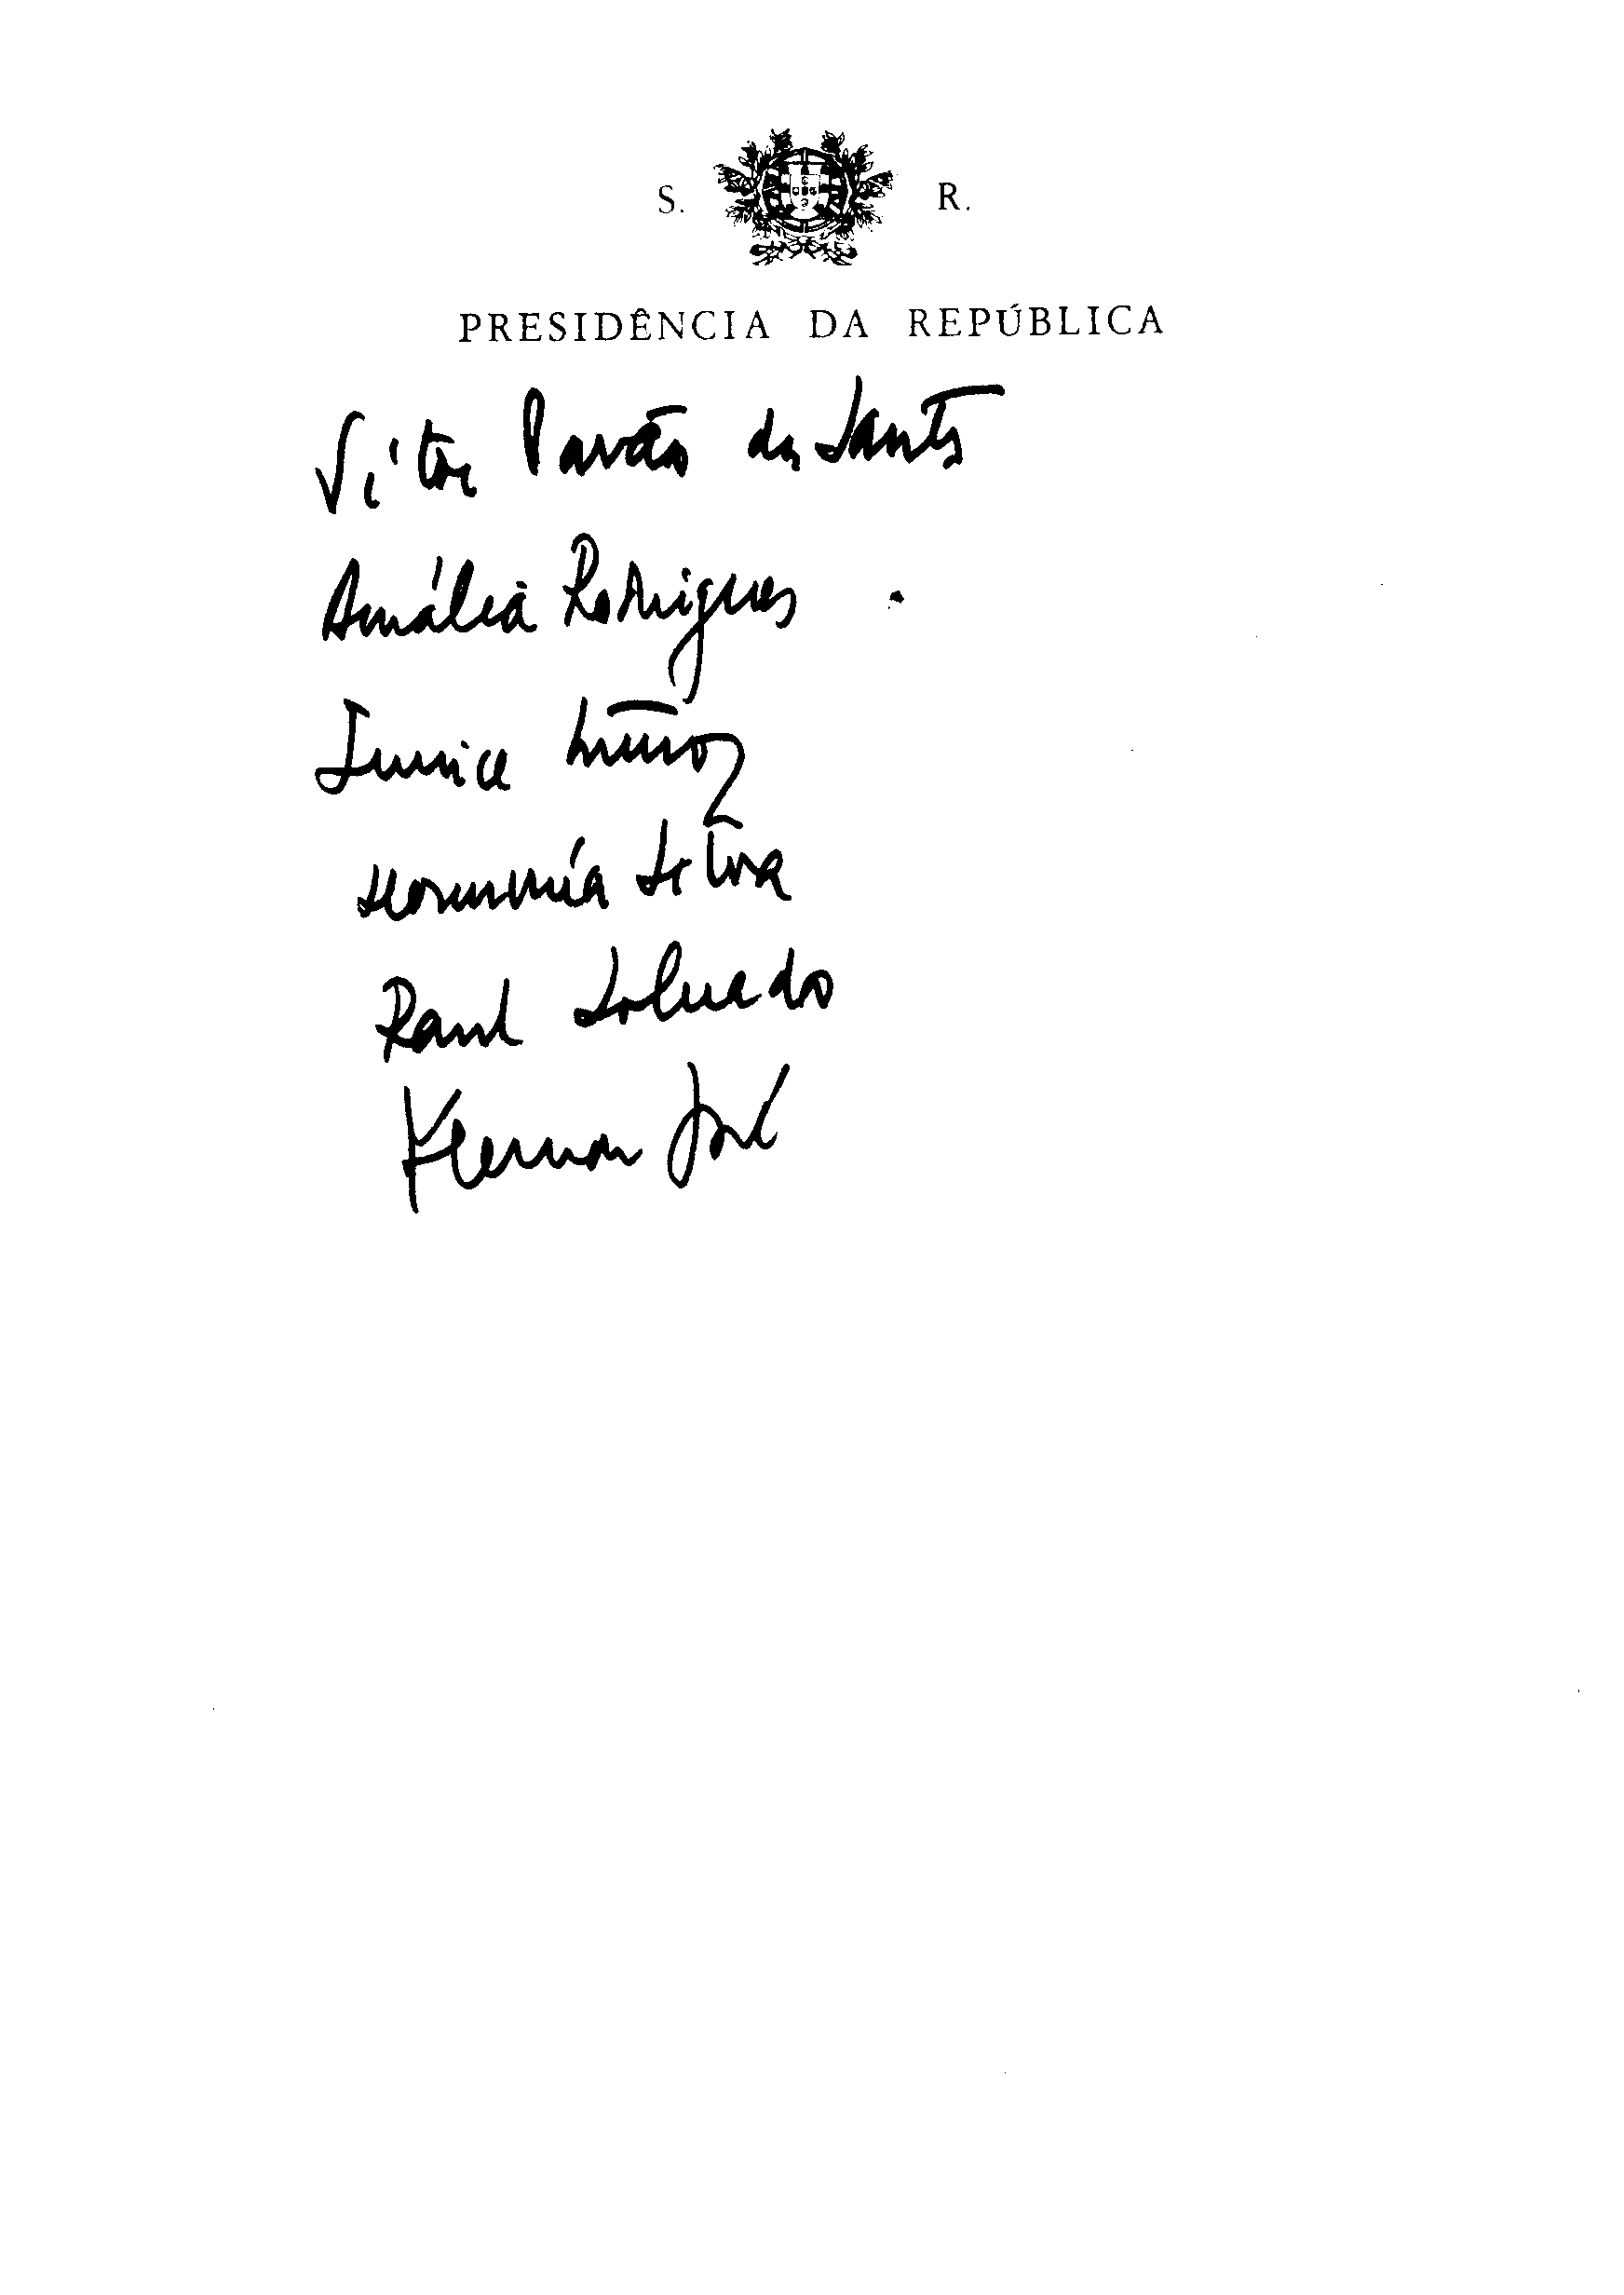 S. R.
PRESIDÊNCIA DA REPÚBLICA
Vítor Pavão dos Santos
Amália Rodrigues
Eunice Muñoz
Hermínia Silva
Raul Solnado
Herman José